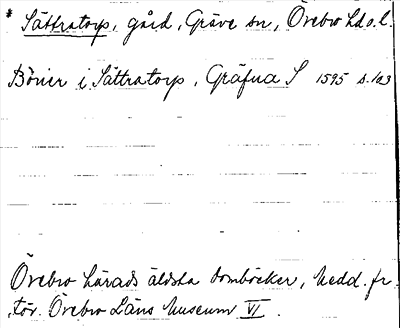 * Sättratorp, gård, Gräve sn, Örebro hd o. l.
Börier i Sättratorp, Gräfua S 1595 s. 103
Örebro härads äldsta domböcker, Medd. fr.
för. Örebro Läns Museum VI.